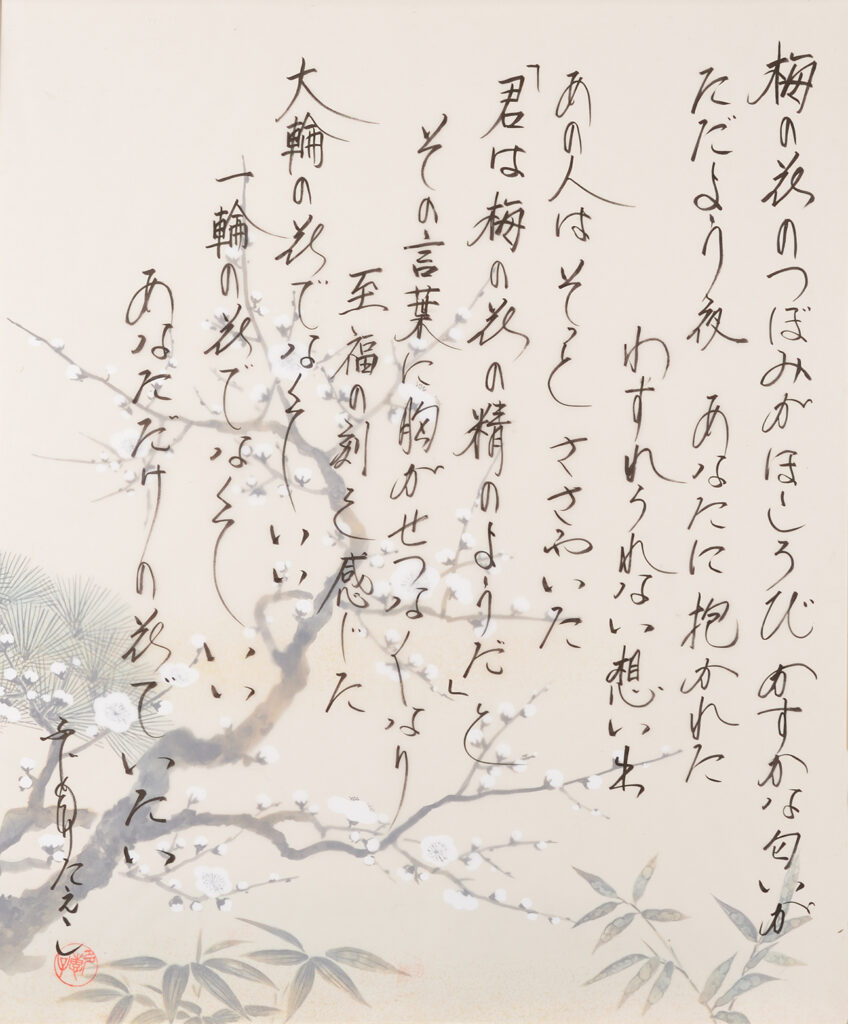 梅の花のつぼみがほころび かすかな匂いが
ただよう夜 あなたに抱かれた
わすれられない想い出
あの人はそっと ささやいた
「君は梅の花の精のようだ」と
その言葉に胸がせつなくなり
至福の刻を感じた
大輪の花でなくていい
一輪の花でなくていい
あなただけの花でいたい